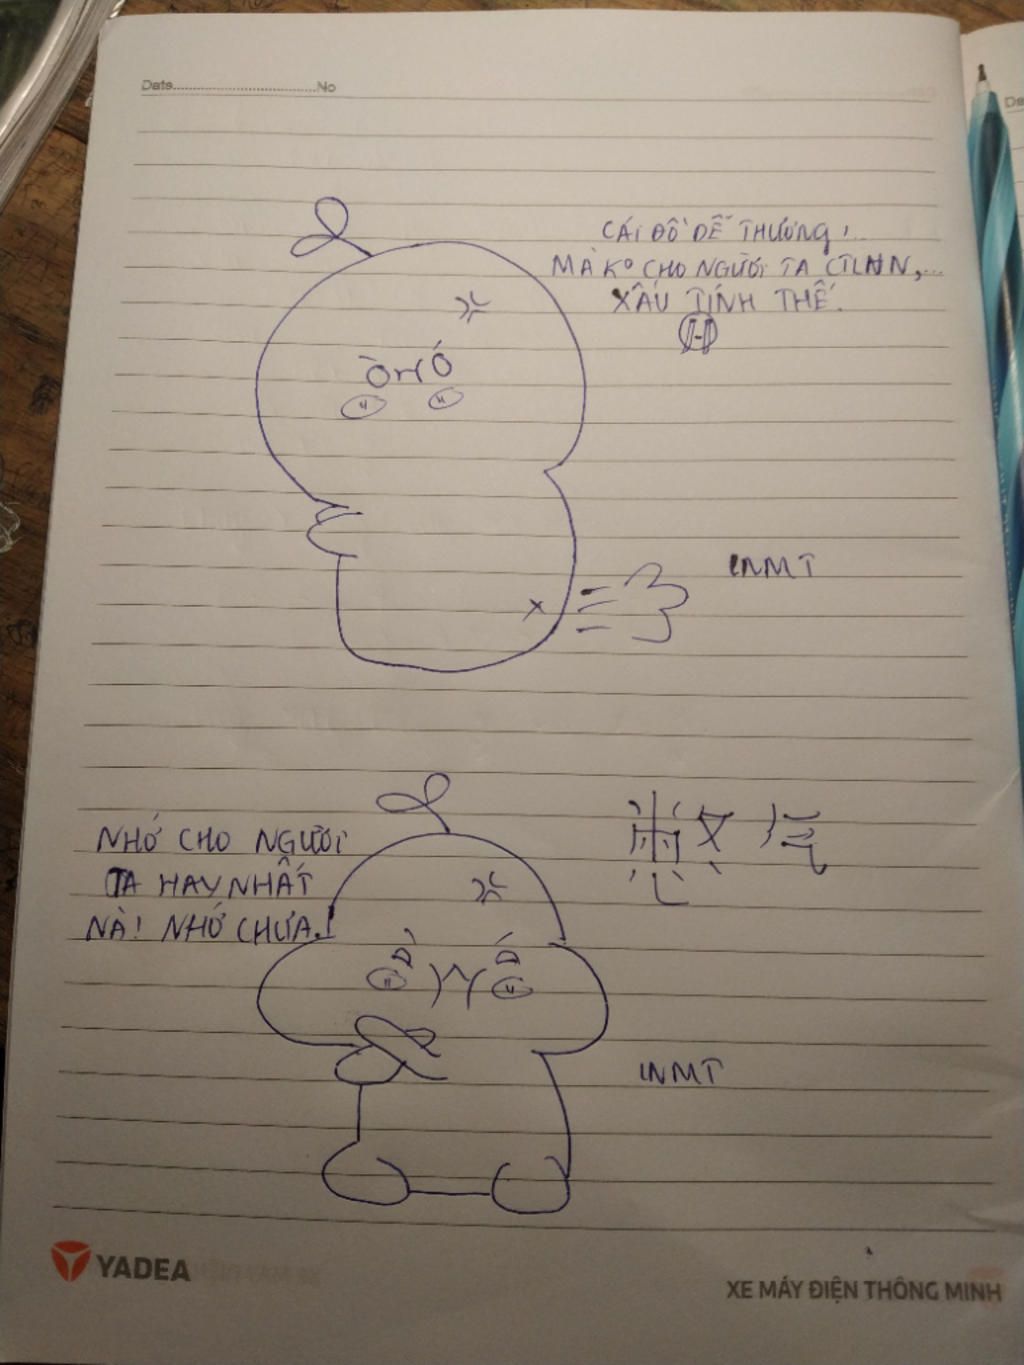 Date.....................................No
CÁI ĐỒ DỄ THƯƠNG!...
MÀ Kº CHO NGƯỜI TA CTLNN,...
XẤU TÍNH THẾ.
H
INMT
NHỚ CHO NGƯỜI
TA HAY NHẤT
NÀ! NHỚ CHƯA!
INMT
YADEA
XE MÁY ĐIỆN THÔNG MINH